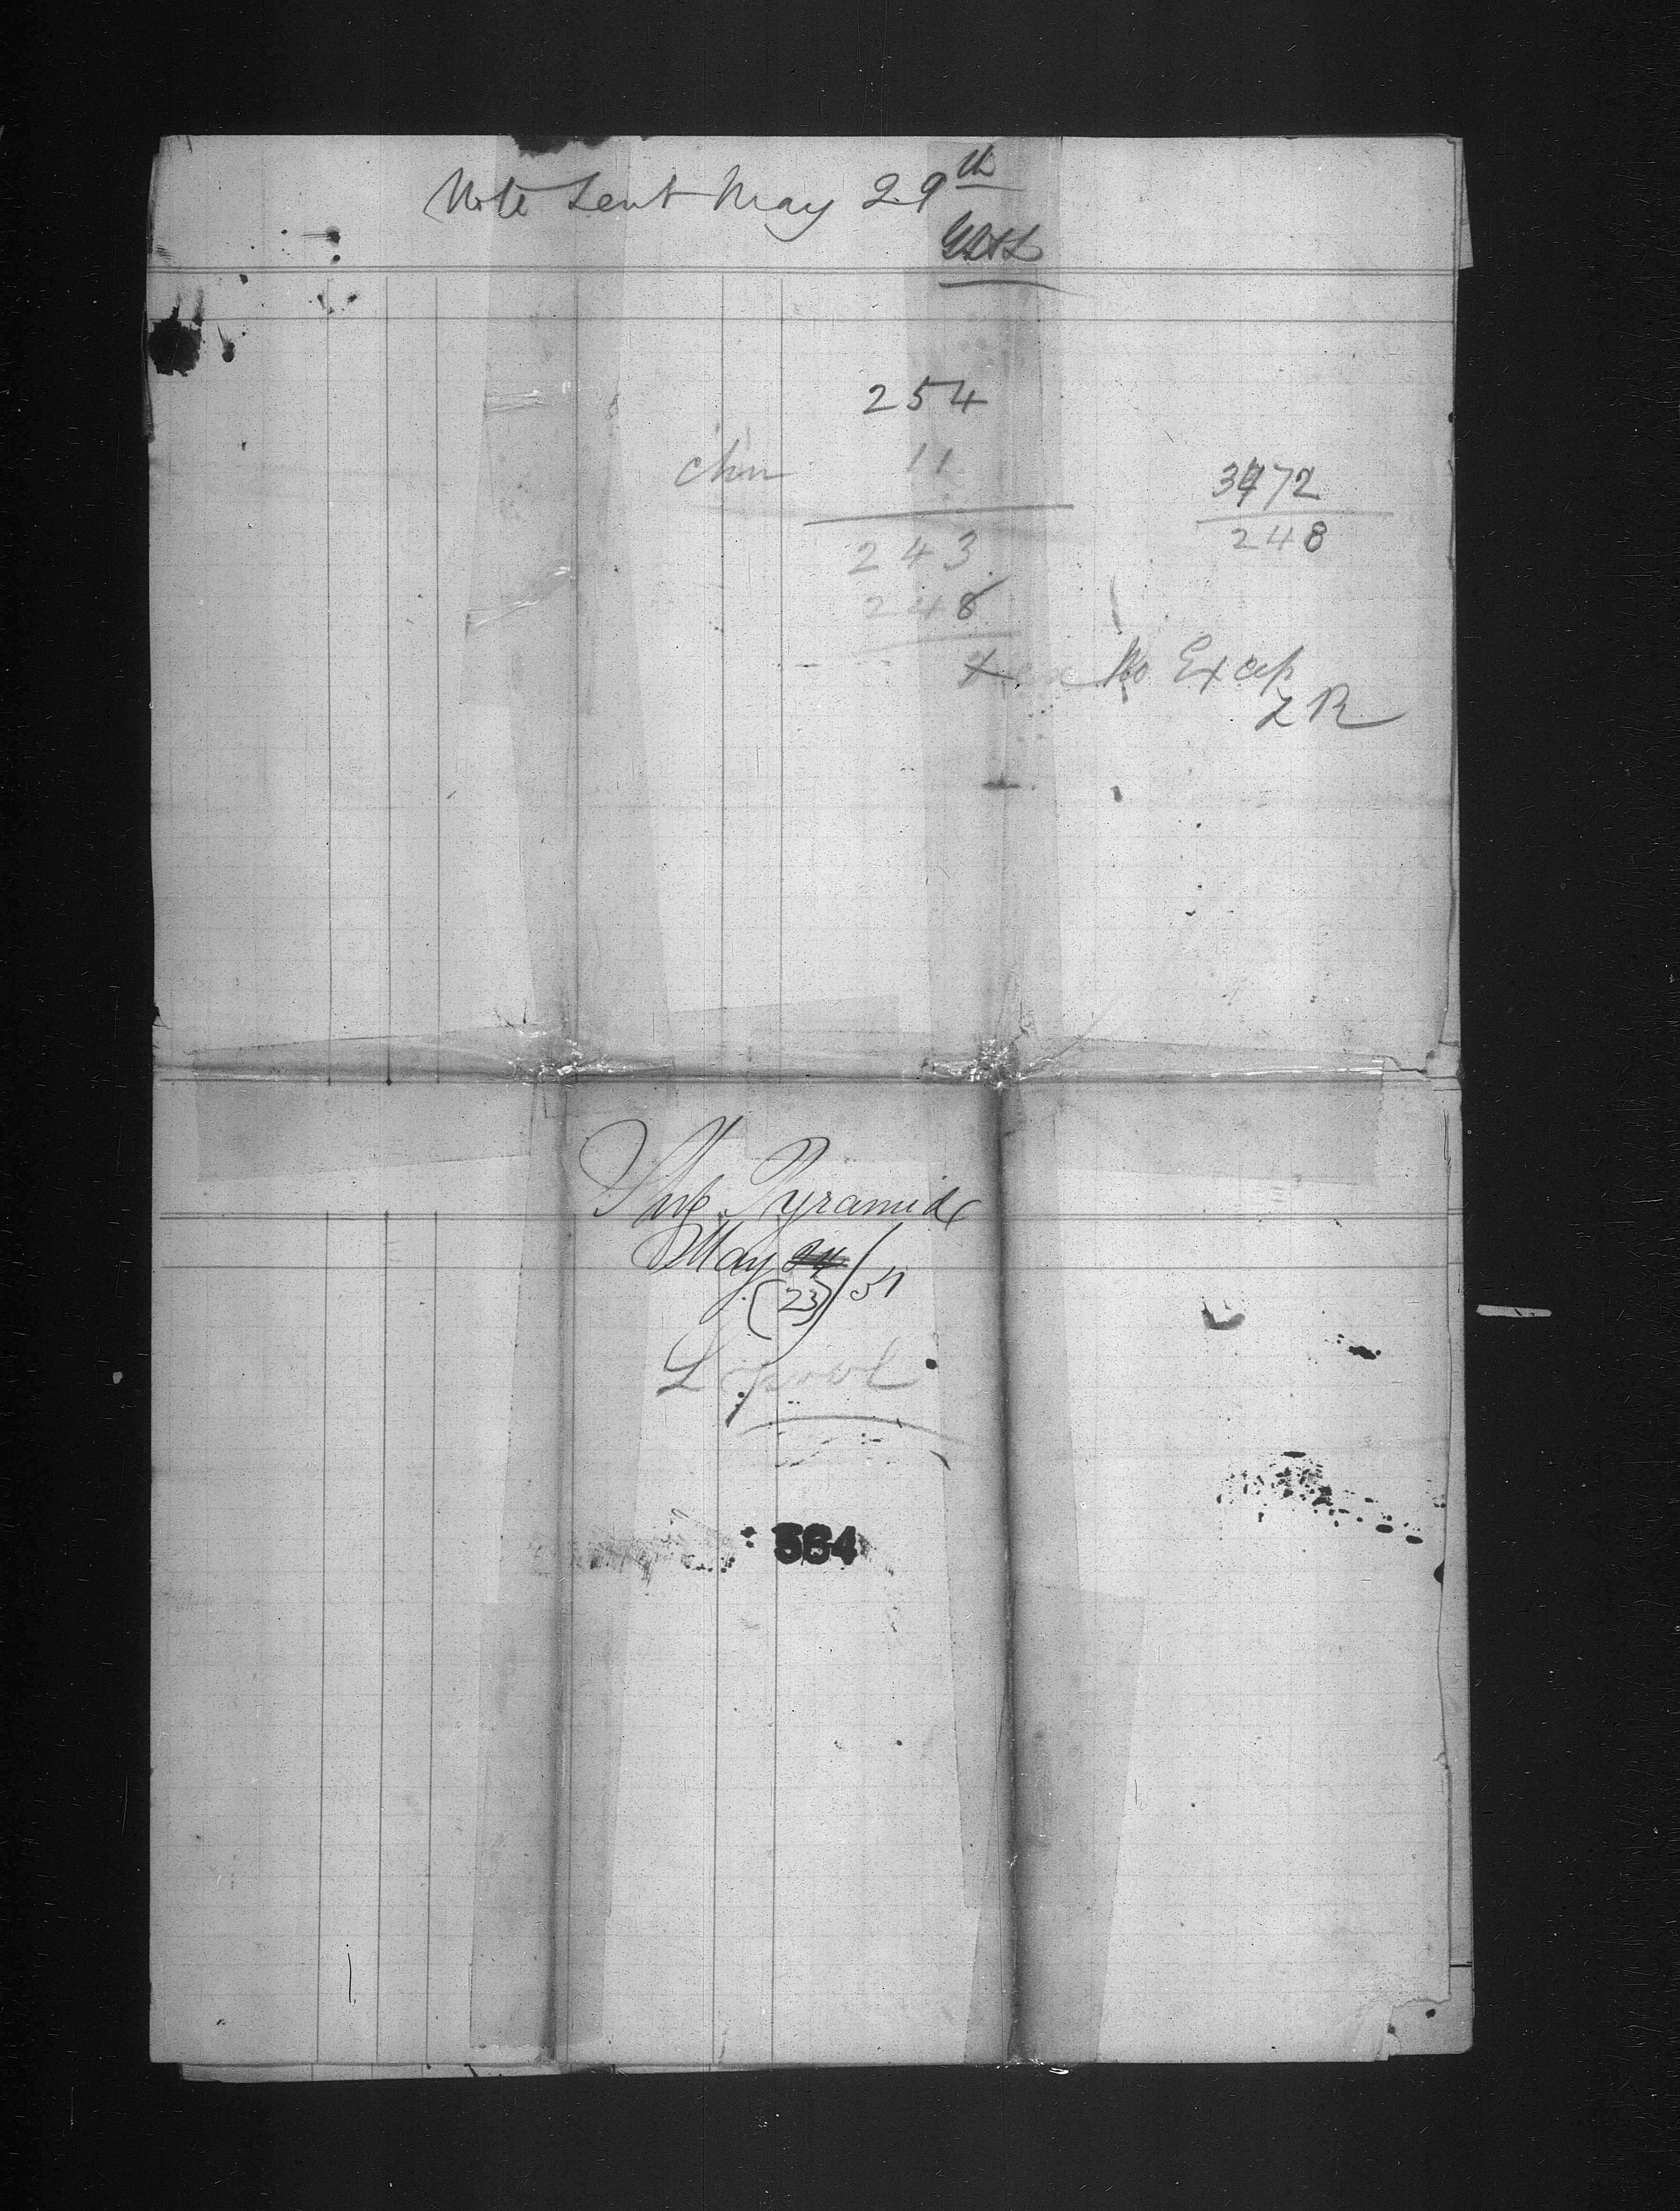 Note Sent May 29th
254
chn 11
3472
248
243
248
No Excep
LR
Ship Pyramid
May 24
(23)/51
Lpool
564